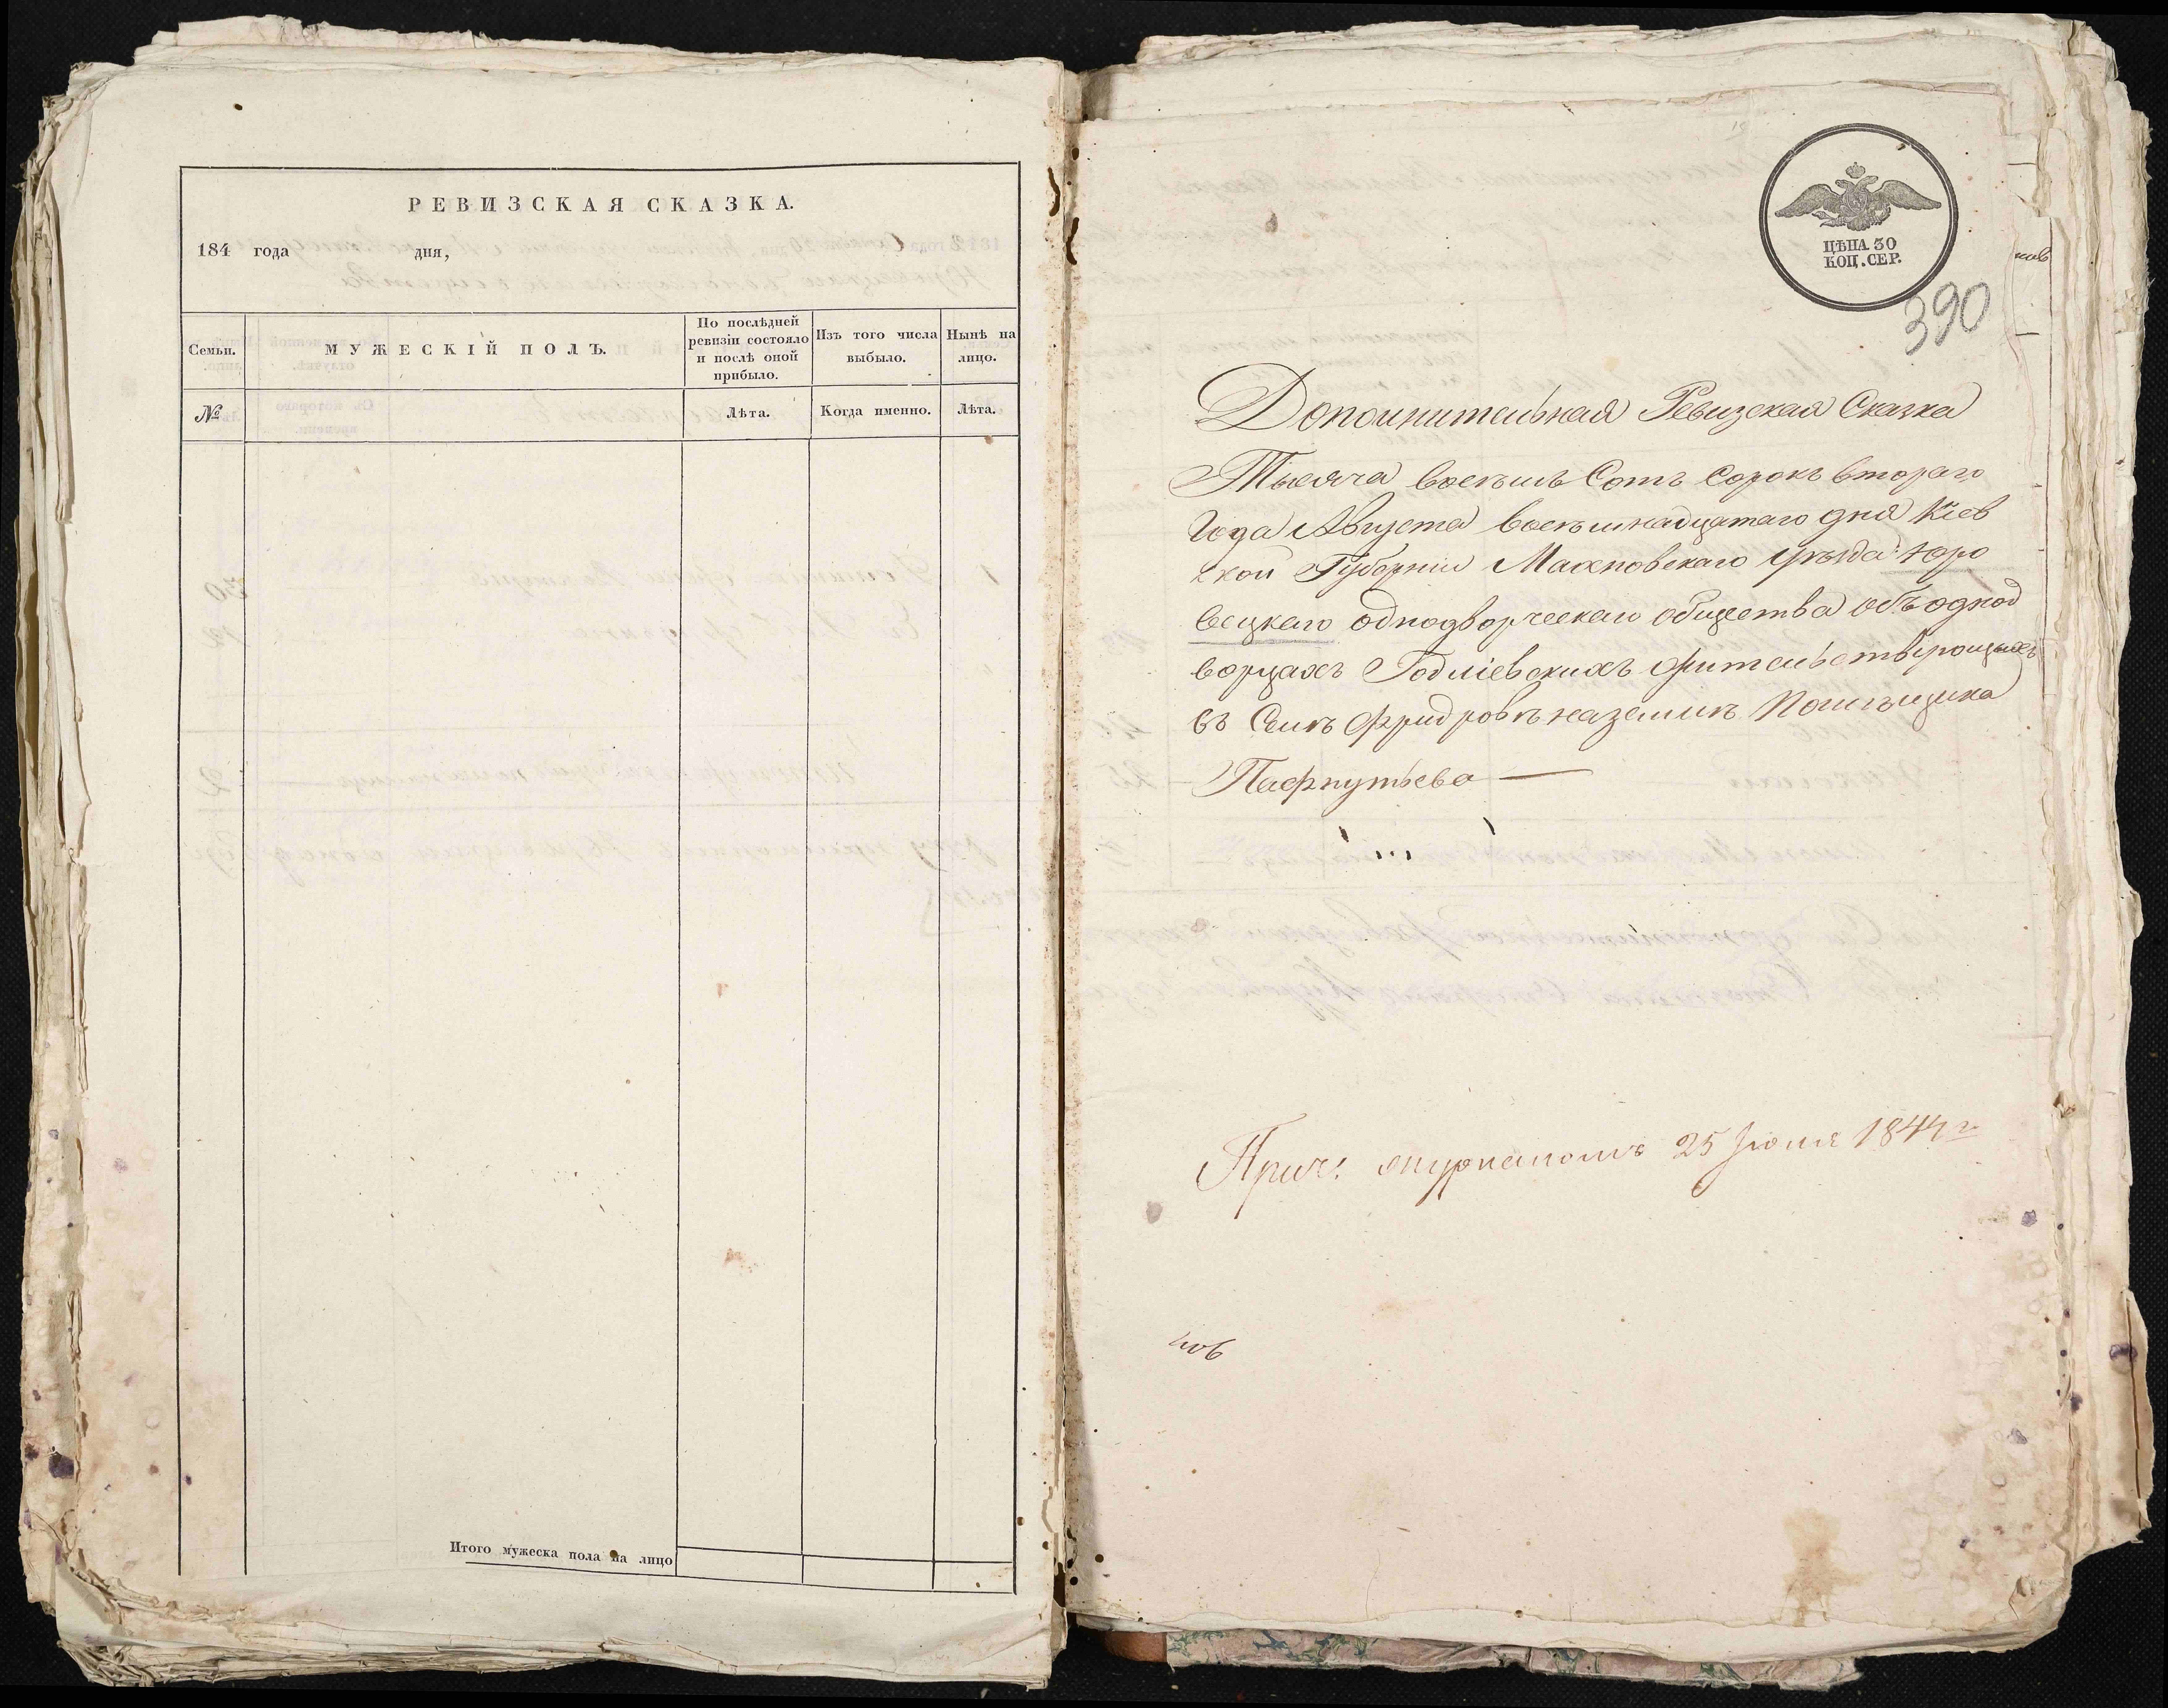 РЕВИЗСКАЯ СКАЗКА.
184 года дня,
Семьи.
МУЖЕСКІЙ ПОЛЪ.
По послѣдней
ревизіи состояло
и послѣ оной
прибыло.
Изъ того числа
выбыло.
Нынѣ на
лицо.
№
Лѣта.
Когда именно.
Лѣта.
Итого мужеска пола на лицо
ЦѢНА 30
КОП. СЕР.
390
Дополнительная Ревизская Сказка
Тысяча восемь Сотъ Сорокъ втораго
Года Августа восемьнадцатаго дня Кіев
ской Губерніи Махновскаго уѣзда Юро
вецкаго однодворческаго общества объ однод
ворцахъ Годліевскихъ жительствующихъ
въ Селѣ на землѣ Помѣщика
Пафнутьева
25 Іюня 1844 г